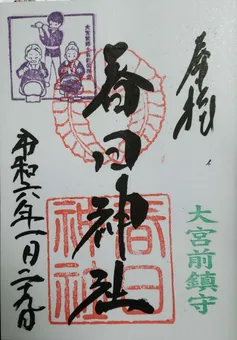 奉拝
春日神社
春日
神社
大宮前鎮守
令和六年一月二十九日